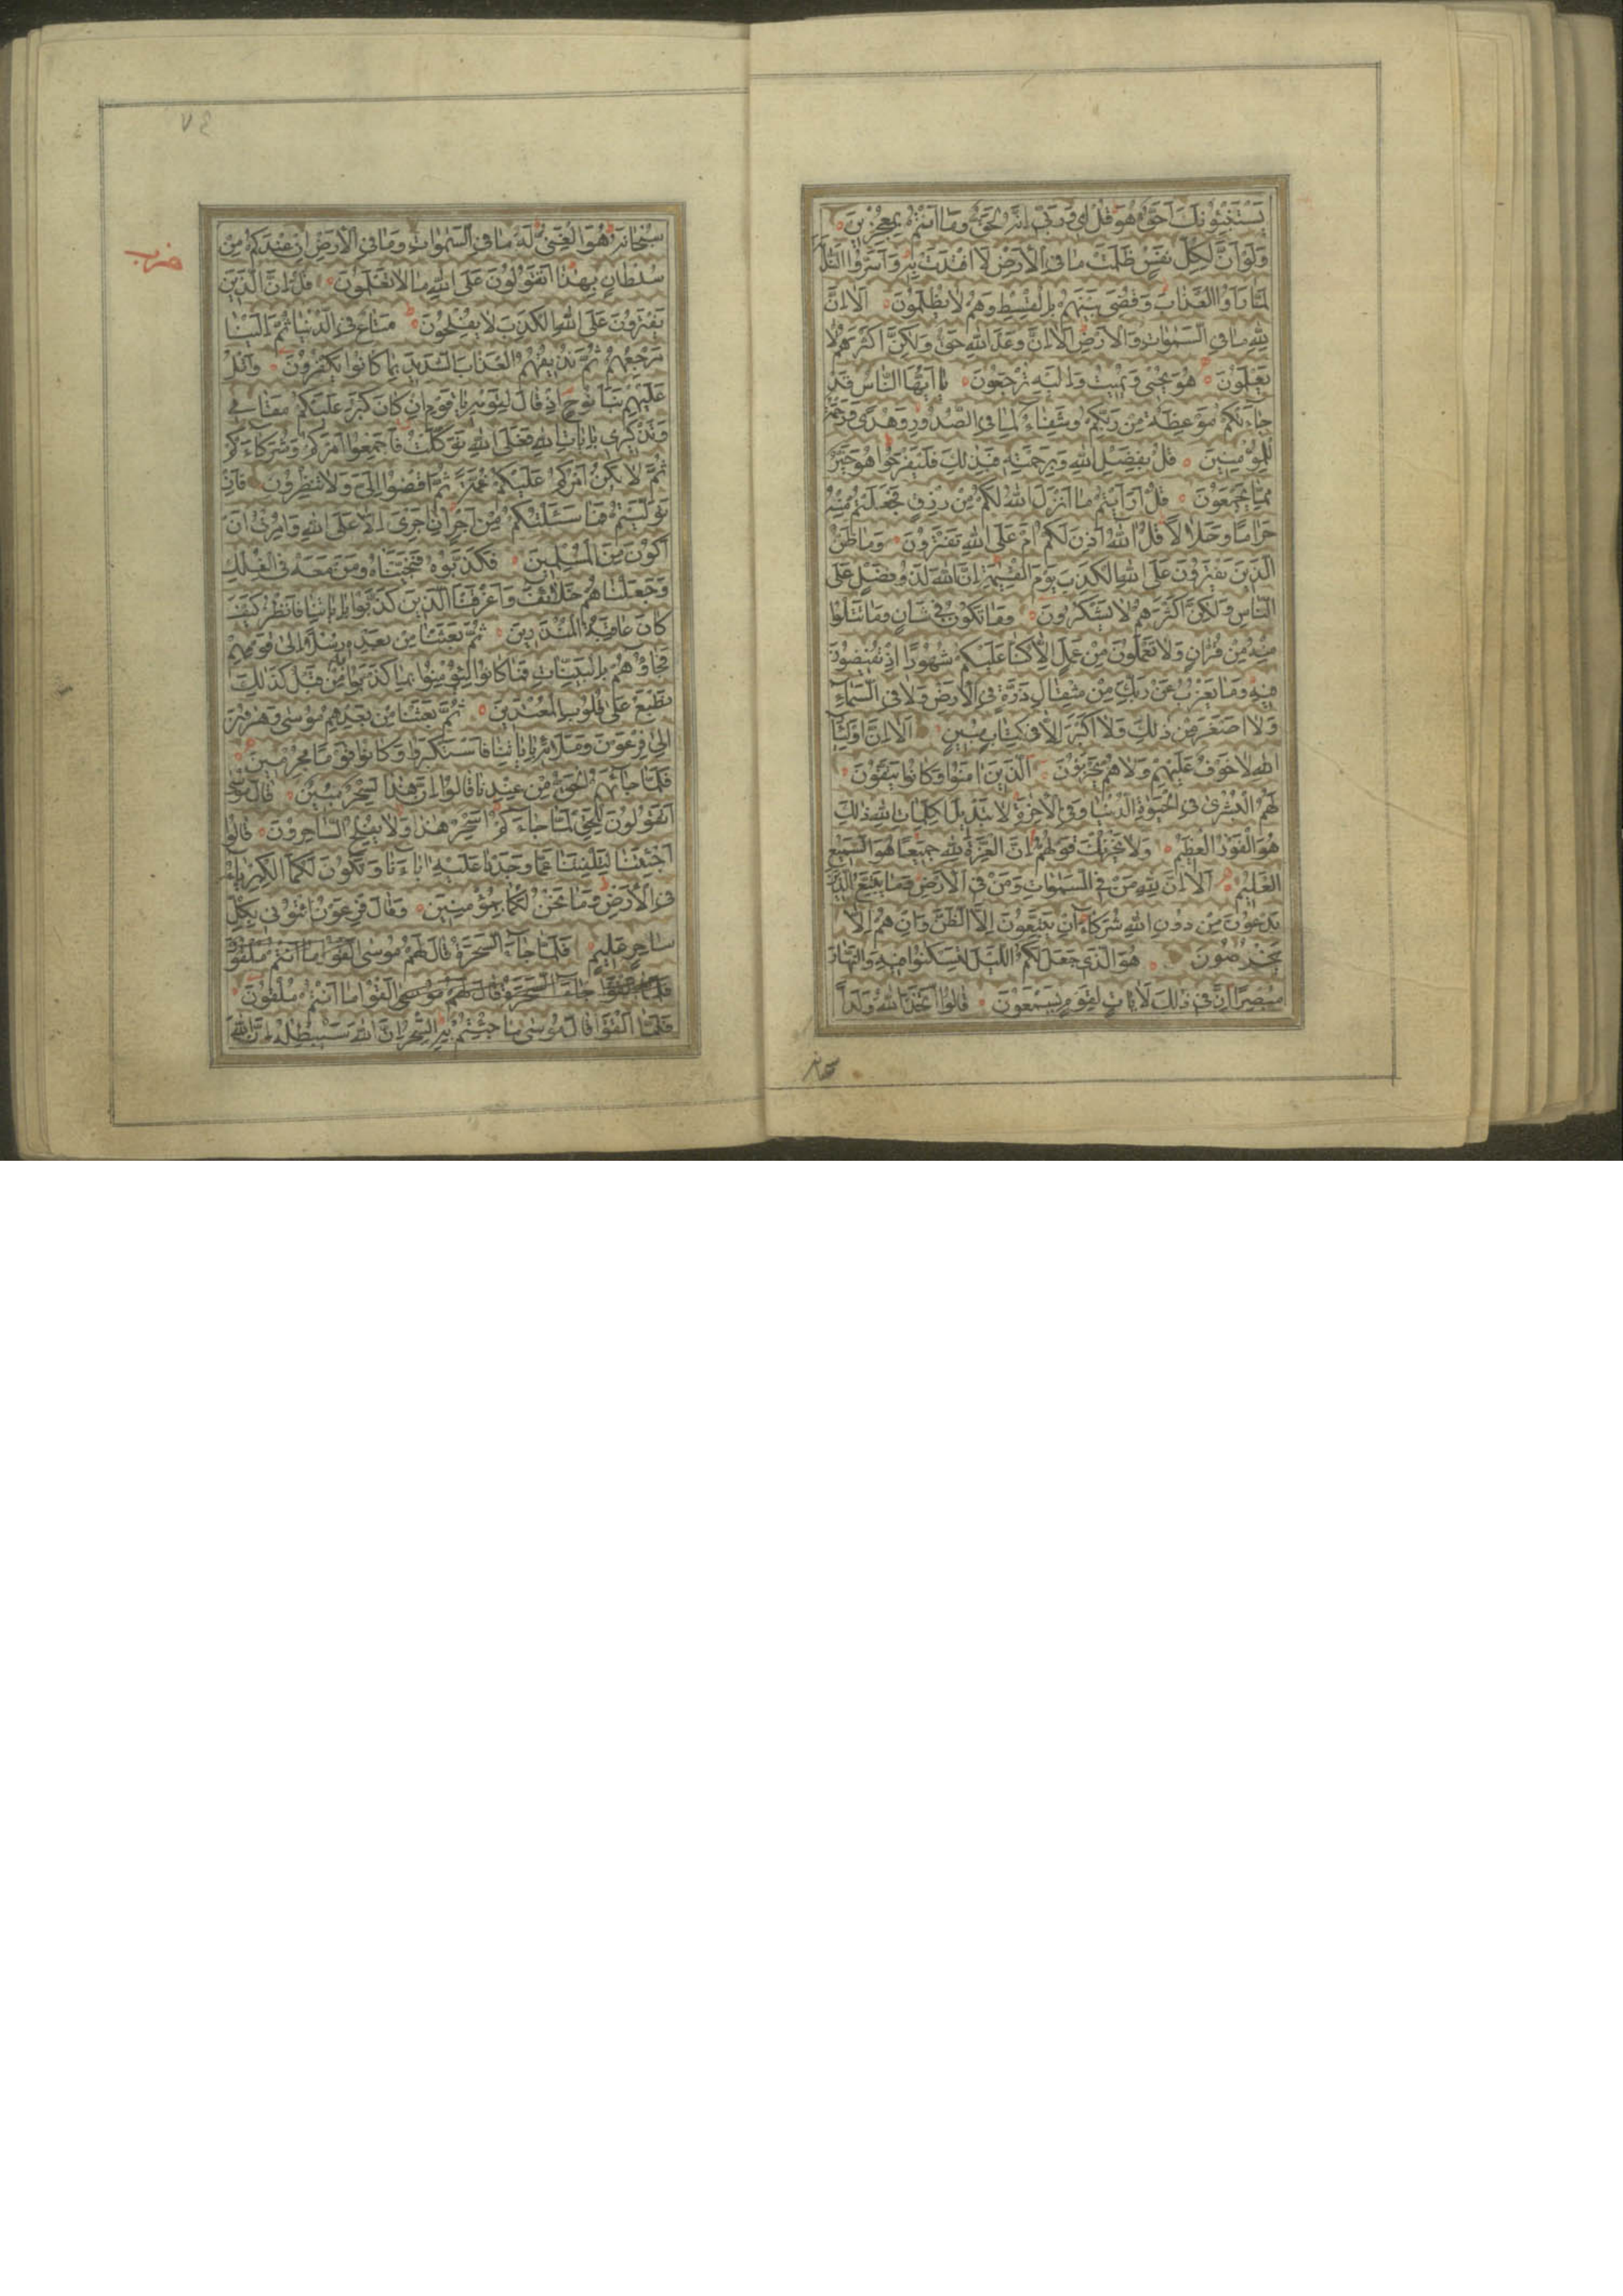 يَسْتَنْبِئُونَكَ اَحَقٌّ هُوَ قُلْ اِی وَرَبّٖی اِنَّهُ لَحَقٌّ وَمَا اَنْتُمْ بِمُعْجِزٖینَ
وَلَوْ اَنَّ لِكُلِّ نَفْسٍ ظَلَمَتْ مَا فِی الْاَرْضِ لَافْتَدَتْ بِهٖ وَاَسَرُّوا النَّدَامَةَ
لَمَّا رَاَوُا الْعَذَابَ وَقُضِیَ بَیْنَهُمْ بِالْقِسْطِ وَهُمْ لَا یُظْلَمُونَ اَلَا اِنَّ
لِلّٰهِ مَا فِی السَّمٰوَاتِ وَالْاَرْضِ اَلَا اِنَّ وَعْدَ اللّٰهِ حَقٌّ وَلٰكِنَّ اَكْثَرَهُمْ لَا
یَعْلَمُونَ هُوَ یُحْیٖی وَیُمٖیتُ وَاِلَیْهِ تُرْجَعُونَ یَا اَیُّهَا النَّاسُ قَدْ
جَاءَتْكُمْ مَوْعِظَةٌ مِنْ رَبِّكُمْ وَشِفَاءٌ لِمَا فِی الصُّدُورِ وَهُدًی وَرَحْمَةٌ
لِلْمُؤْمِنٖینَ قُلْ بِفَضْلِ اللّٰهِ وَبِرَحْمَتِهٖ فَبِذٰلِكَ فَلْیَفْرَحُوا هُوَ خَیْرٌ
مِمَّا یَجْمَعُونَ قُلْ اَرَاَیْتُمْ مَا اَنْزَلَ اللّٰهُ لَكُمْ مِنْ رِزْقٍ فَجَعَلْتُمْ مِنْهُ
حَرَامًا وَحَلَالًا قُلْ اٰللّٰهُ اَذِنَ لَكُمْ اَمْ عَلَی اللّٰهِ تَفْتَرُونَ وَمَا ظَنُّ
الَّذٖینَ یَفْتَرُونَ عَلَی اللّٰهِ الْكَذِبَ یَوْمَ الْقِیٰمَةِ اِنَّ اللّٰهَ لَذُو فَضْلٍ عَلَی
النَّاسِ وَلٰكِنَّ اَكْثَرَهُمْ لَا یَشْكُرُونَ وَمَا تَكُونُ فٖی شَاْنٍ وَمَا تَتْلُوا
مِنْهُ مِنْ قُرْاٰنٍ وَلَا تَعْمَلُونَ مِنْ عَمَلٍ اِلَّا كُنَّا عَلَیْكُمْ شُهُودًا اِذْ تُفٖیضُونَ
فٖیهِ وَمَا یَعْزُبُ عَنْ رَبِّكَ مِنْ مِثْقَالِ ذَرَّةٍ فِی الْاَرْضِ وَلَا فِی السَّمَاءِ
وَلَا اَصْغَرَ مِنْ ذٰلِكَ وَلَا اَكْبَرَ اِلَّا فٖی كِتَابٍ مُبٖینٍ اَلَا اِنَّ اَوْلِیَاءَ
اللّٰهِ لَا خَوْفٌ عَلَیْهِمْ وَلَا هُمْ یَحْزَنُونَ اَلَّذٖینَ اٰمَنُوا وَكَانُوا یَتَّقُونَ
لَهُمُ الْبُشْرٰی فِی الْحَیٰوةِ الدُّنْیَا وَفِی الْاٰخِرَةِ لَا تَبْدٖیلَ لِكَلِمَاتِ اللّٰهِ ذٰلِكَ
هُوَ الْفَوْزُ الْعَظٖیمُ وَلَا یَحْزُنْكَ قَوْلُهُمْ اِنَّ الْعِزَّةَ لِلّٰهِ جَمٖیعًا هُوَ السَّمٖیعُ
الْعَلٖیمُ اَلَا اِنَّ لِلّٰهِ مَنْ فِی السَّمٰوَاتِ وَمَنْ فِی الْاَرْضِ وَمَا یَتَّبِعُ الَّذٖینَ
یَدْعُونَ مِنْ دُونِ اللّٰهِ شُرَكَاءَ اِنْ یَتَّبِعُونَ اِلَّا الظَّنَّ وَاِنْ هُمْ اِلَّا
یَخْرُصُونَ هُوَ الَّذٖی جَعَلَ لَكُمُ اللَّیْلَ لِتَسْكُنُوا فٖیهِ وَالنَّهَارَ
مُبْصِرًا اِنَّ فٖی ذٰلِكَ لَاٰیَاتٍ لِقَوْمٍ یَسْمَعُونَ قَالُوا اتَّخَذَ اللّٰهُ وَلَدًا
سبحانه
٧٤
حزب
سُبْحَانَهُ هُوَ الْغَنِیُّ لَهُ مَا فِی السَّمٰوَاتِ وَمَا فِی الْاَرْضِ اِنْ عِنْدَكُمْ مِنْ
سُلْطَانٍ بِهٰذَا اَتَقُولُونَ عَلَی اللّٰهِ مَا لَا تَعْلَمُونَ قُلْ اِنَّ الَّذٖینَ
یَفْتَرُونَ عَلَی اللّٰهِ الْكَذِبَ لَا یُفْلِحُونَ مَتَاعٌ فِی الدُّنْیَا ثُمَّ اِلَیْنَا
مَرْجِعُهُمْ ثُمَّ نُذٖیقُهُمُ الْعَذَابَ الشَّدٖیدَ بِمَا كَانُوا یَكْفُرُونَ وَاتْلُ
عَلَیْهِمْ نَبَاَ نُوحٍ اِذْ قَالَ لِقَوْمِهٖ یَا قَوْمِ اِنْ كَانَ كَبُرَ عَلَیْكُمْ مَقَامٖی
وَتَذْكٖیرٖی بِاٰیَاتِ اللّٰهِ فَعَلَی اللّٰهِ تَوَكَّلْتُ فَاَجْمِعُوا اَمْرَكُمْ وَشُرَكَاءَكُمْ
ثُمَّ لَا یَكُنْ اَمْرُكُمْ عَلَیْكُمْ غُمَّةً ثُمَّ اقْضُوا اِلَیَّ وَلَا تُنْظِرُونِ فَاِنْ
تَوَلَّیْتُمْ فَمَا سَئَلْتُكُمْ مِنْ اَجْرٍ اِنْ اَجْرِیَ اِلَّا عَلَی اللّٰهِ وَاُمِرْتُ اَنْ
اَكُونَ مِنَ الْمُسْلِمٖینَ فَكَذَّبُوهُ فَنَجَّیْنَاهُ وَمَنْ مَعَهُ فِی الْفُلْكِ
وَجَعَلْنَاهُمْ خَلَائِفَ وَاَغْرَقْنَا الَّذٖینَ كَذَّبُوا بِاٰیَاتِنَا فَانْظُرْ كَیْفَ
كَانَ عَاقِبَةُ الْمُنْذَرٖینَ ثُمَّ بَعَثْنَا مِنْ بَعْدِهٖ رُسُلًا اِلٰی قَوْمِهِمْ
فَجَاؤُهُمْ بِالْبَیِّنَاتِ فَمَا كَانُوا لِیُؤْمِنُوا بِمَا كَذَّبُوا بِهٖ مِنْ قَبْلُ كَذٰلِكَ
نَطْبَعُ عَلٰی قُلُوبِ الْمُعْتَدٖینَ ثُمَّ بَعَثْنَا مِنْ بَعْدِهِمْ مُوسٰی وَهٰرُونَ
اِلٰی فِرْعَوْنَ وَمَلَائِهٖ بِاٰیَاتِنَا فَاسْتَكْبَرُوا وَكَانُوا قَوْمًا مُجْرِمٖینَ
فَلَمَّا جَاءَهُمُ الْحَقُّ مِنْ عِنْدِنَا قَالُوا اِنَّ هٰذَا لَسِحْرٌ مُبٖینٌ قَالَ مُوسٰی
اَتَقُولُونَ لِلْحَقِّ لَمَّا جَاءَكُمْ اَسِحْرٌ هٰذَا وَلَا یُفْلِحُ السَّاحِرُونَ قَالُوا
اَجِئْتَنَا لِتَلْفِتَنَا عَمَّا وَجَدْنَا عَلَیْهِ اٰبَاءَنَا وَتَكُونَ لَكُمَا الْكِبْرِیَاءُ
فِی الْاَرْضِ وَمَا نَحْنُ لَكُمَا بِمُؤْمِنٖینَ وَقَالَ فِرْعَوْنُ ائْتُونٖی بِكُلِّ
سَاحِرٍ عَلٖیمٍ فَلَمَّا جَاءَ السَّحَرَةُ قَالَ لَهُمْ مُوسٰی اَلْقُوا مَا اَنْتُمْ مُلْقُونَ
جَاءَ السَّحَرَةُ قَالَ لَهُمْ مُوسٰی اَلْقُوا مَا اَنْتُمْ مُلْقُونَ
فَلَمَّا اَلْقَوْا قَالَ مُوسٰی مَا جِئْتُمْ بِهِ السِّحْرُ اِنَّ اللّٰهَ سَیُبْطِلُهُ اِنَّ اللّٰهَ